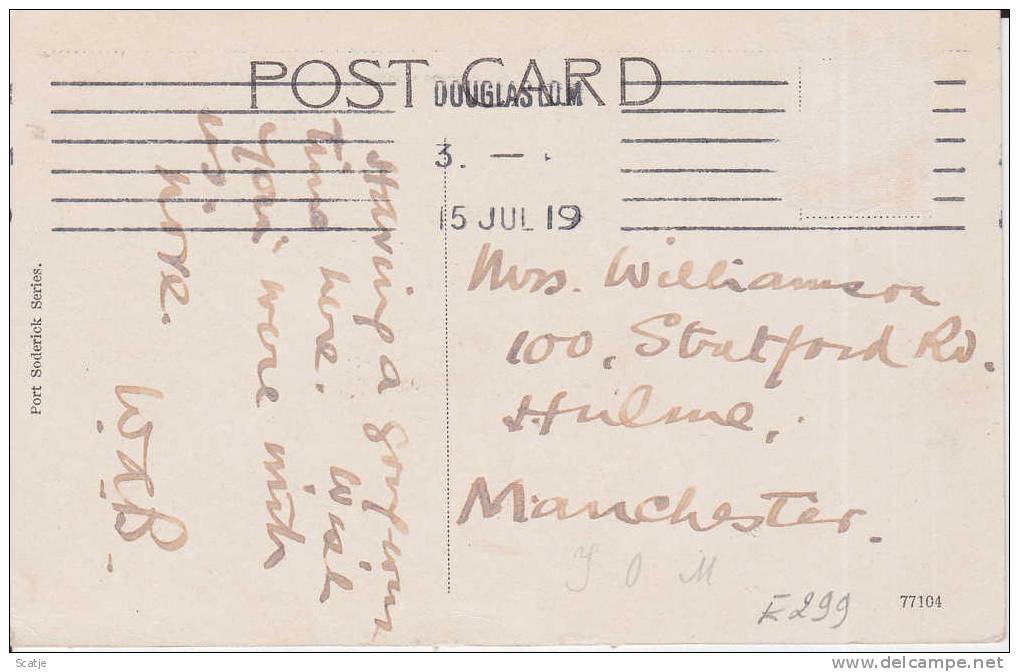 POST CARD
DOUGLAS I.O.M
3. —
15 JUL 19
Having a
time here. Wish
you were with
us
here.
W.
Mrs. Williamson
100, Stratford Rd.
Hulme,
Manchester.
I O M
E299
77104
Port Soderick Series.
Scatje
www.delcampe.net